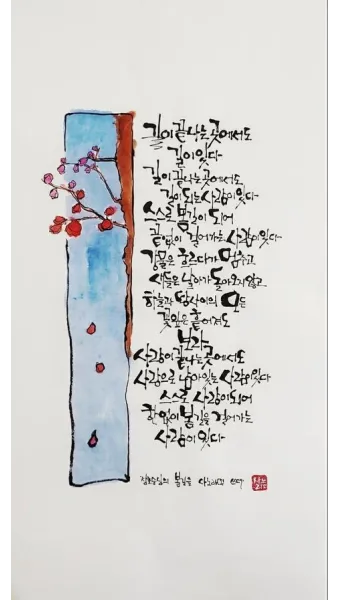 길이 끝나는 곳에서도
길이 있다
길이 끝나는 곳에서도
길이 되는 사람이 있다
스스로 봄길이 되어
끝없이 걸어가는 사람이 있다
강물은 흐르다가 멈추고
새들은 날아가 돌아오지 않고
하늘과 땅 사이의 모든
꽃잎은 흩어져도
보라
사랑이 끝나는 곳에서도
사랑으로 남아있는 사람이 있다
스스로 사랑이 되어
한없이 봄길을 걸어가는
사람이 있다
정호승님의 봄길을 쓰다